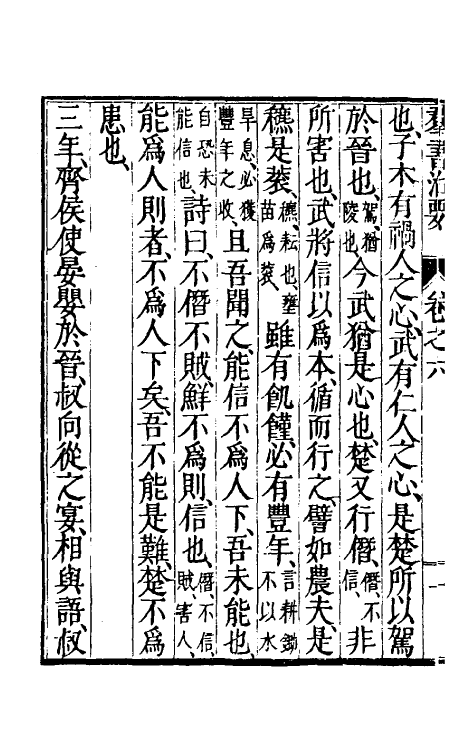 羣書治要 卷之六
也、子木有禍人之心、武有仁人之心、是楚所以駕
於晉也、駕、猶陵也今武猶是心也、楚又行僭、僭、不信、非
所害也、武將信以爲本、循而行之、譬如農夫、是
穮是蓘、穮、耘也、壅苗爲蓘、雖有飢饉、必有豐年、言耕鋤不以水
旱息、必獲豐年之收、且吾聞之、能信不爲人下、吾未能也、
自恐未能信也、詩曰、不僭不賊、鮮不爲則、信也、僭、不信、賊、害人、
能爲人則者、不爲人下矣、吾不能是難、楚不爲
患也、
三年、齊侯使晏嬰於晉、叔向從之宴、相與語、叔